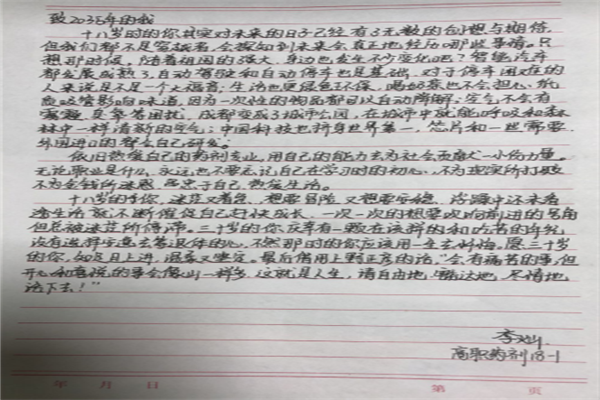 致2035年的我
十八岁时的你其实对未来的日子已经有了无数的幻想与期待
但我们都不是穿越者,会探知到未来会真正地经历哪些事情。只
想那时候,随着祖国的强大,身边也发生不少变化吧?智能汽车
都发展成熟了,自动驾驶和自动停车也是基础,对于停车困难的
人来说是不是一个大福音;生活也更绿色环保,喝奶茶也不会担心纸
质吸管影响味道,因为一次性的物品都可以自动降解;空气不会有
雾霾是零苦困扰,成都变成了城市公园,在城市中就能呼吸和森
林中一样清新的空气;中国科技也跻身世界第一,芯片和一些需要
外国进口的都会自己研发。
依旧热爱自己的药剂专业,用自己的能力去为社会贡献一小份力量。
无论职业是什么,永远也不要忘记自己在学习时的初心,不为现实所打败
不为金钱所迷惑,忠于自己,热爱生活。
十八岁的你,迷茫又着急,想要冒险又想要安稳,浮躁中还未看
透生活就不断催促自己赶快成长,一次一次的想要吹响前进的号角
但总被迷茫所停滞。三十岁的你庆幸有一颗在该拼的和吃苦的年纪
没有选择安逸去养退休的心,不然那时的你应该用一生去后悔。愿三十岁
的你,如愿日上进,温柔又坚定。最后借用上野正彦的话,“会有痛苦的事,但
开心和喜悦的事会像山一样多,这就是人生,请自由地,豁达地,尽情地
活下去!”
李灿
高职药剂18-1
年 月 日
第 页